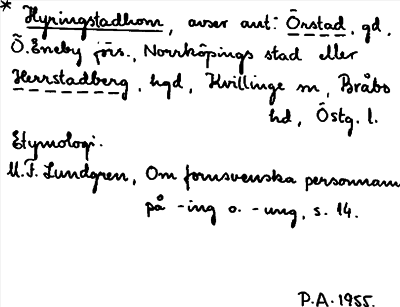 * Hyringstadhom, avser ant. Örstad, gd,
Ö. Eneby förs., Norrköpings stad eller
Herrstadberg, hgd, Kvillinge sn, Bråbo
hd, Östg. l.
Etymologi.
M.F. Lundgren, Om fornsvenska personnamn
på -ing o. -ung, s. 14.
P.A. 1955.